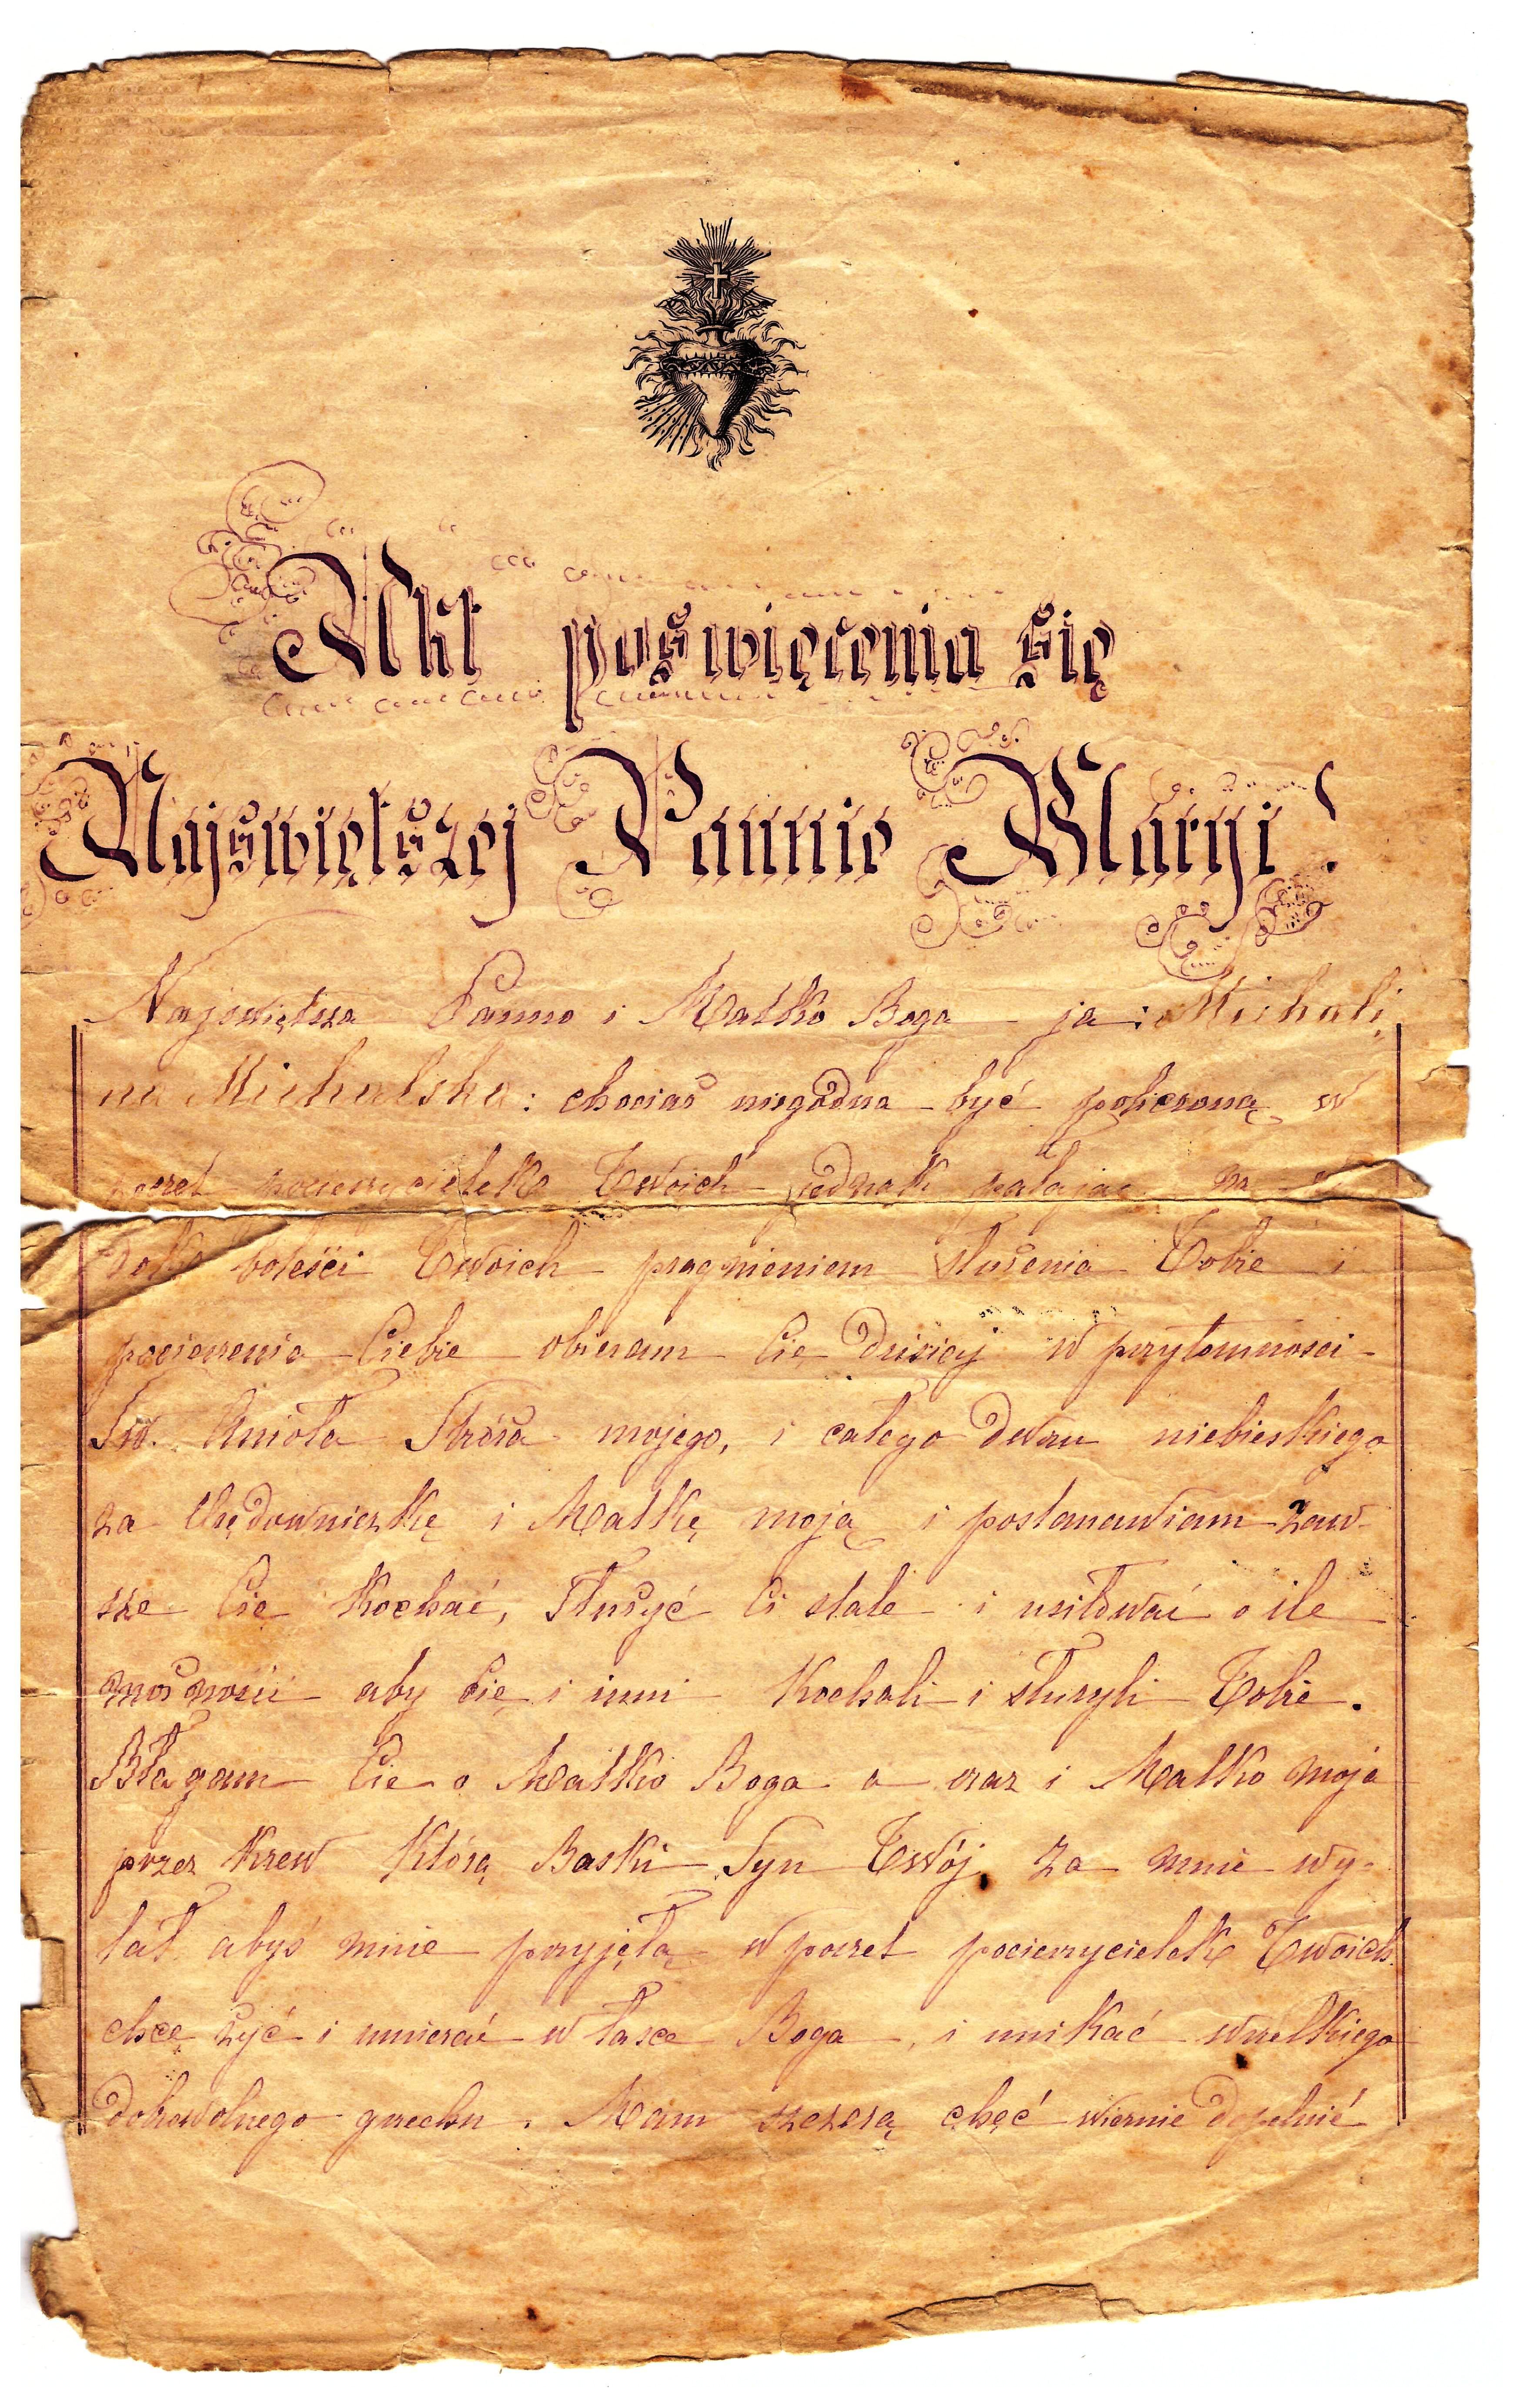 Akt poświęcenia się
Najświętszej Pannie Maryi!
Najświętsza Panno i Matko Boga ja: Michali,
na Michalska: chociaż niegodna być policzoną w
poczet pocieszycielek Twoich jednak pałając na
boleści Twoich pragnieniem służenia Tobie i
pocieszenia Ciebie obieram Cię dzisiaj w przytomności
Św. Anioła Stróża mojego, i całego dworu niebieskiego
za Orędowniczkę i Matkę moją i postanawiam zaw-
sze Cie Kochać, Służyć Ci stale i usiłować o ile
możności aby Cię i inni Kochali i służyli Tobie.
Błagam Cie o Matko Boga a oraz i Matko moja
przez Krew Którą Boski Syn Twój za mnie wy-
lał abyś mnie przyjęła w poczet pocieszycielek Twoich
chcę żyć i umierać w łasce Boga, i unikać wszelkiego
dobrowolnego grzechu. Mam szczerą chęć wiernie dopełnić